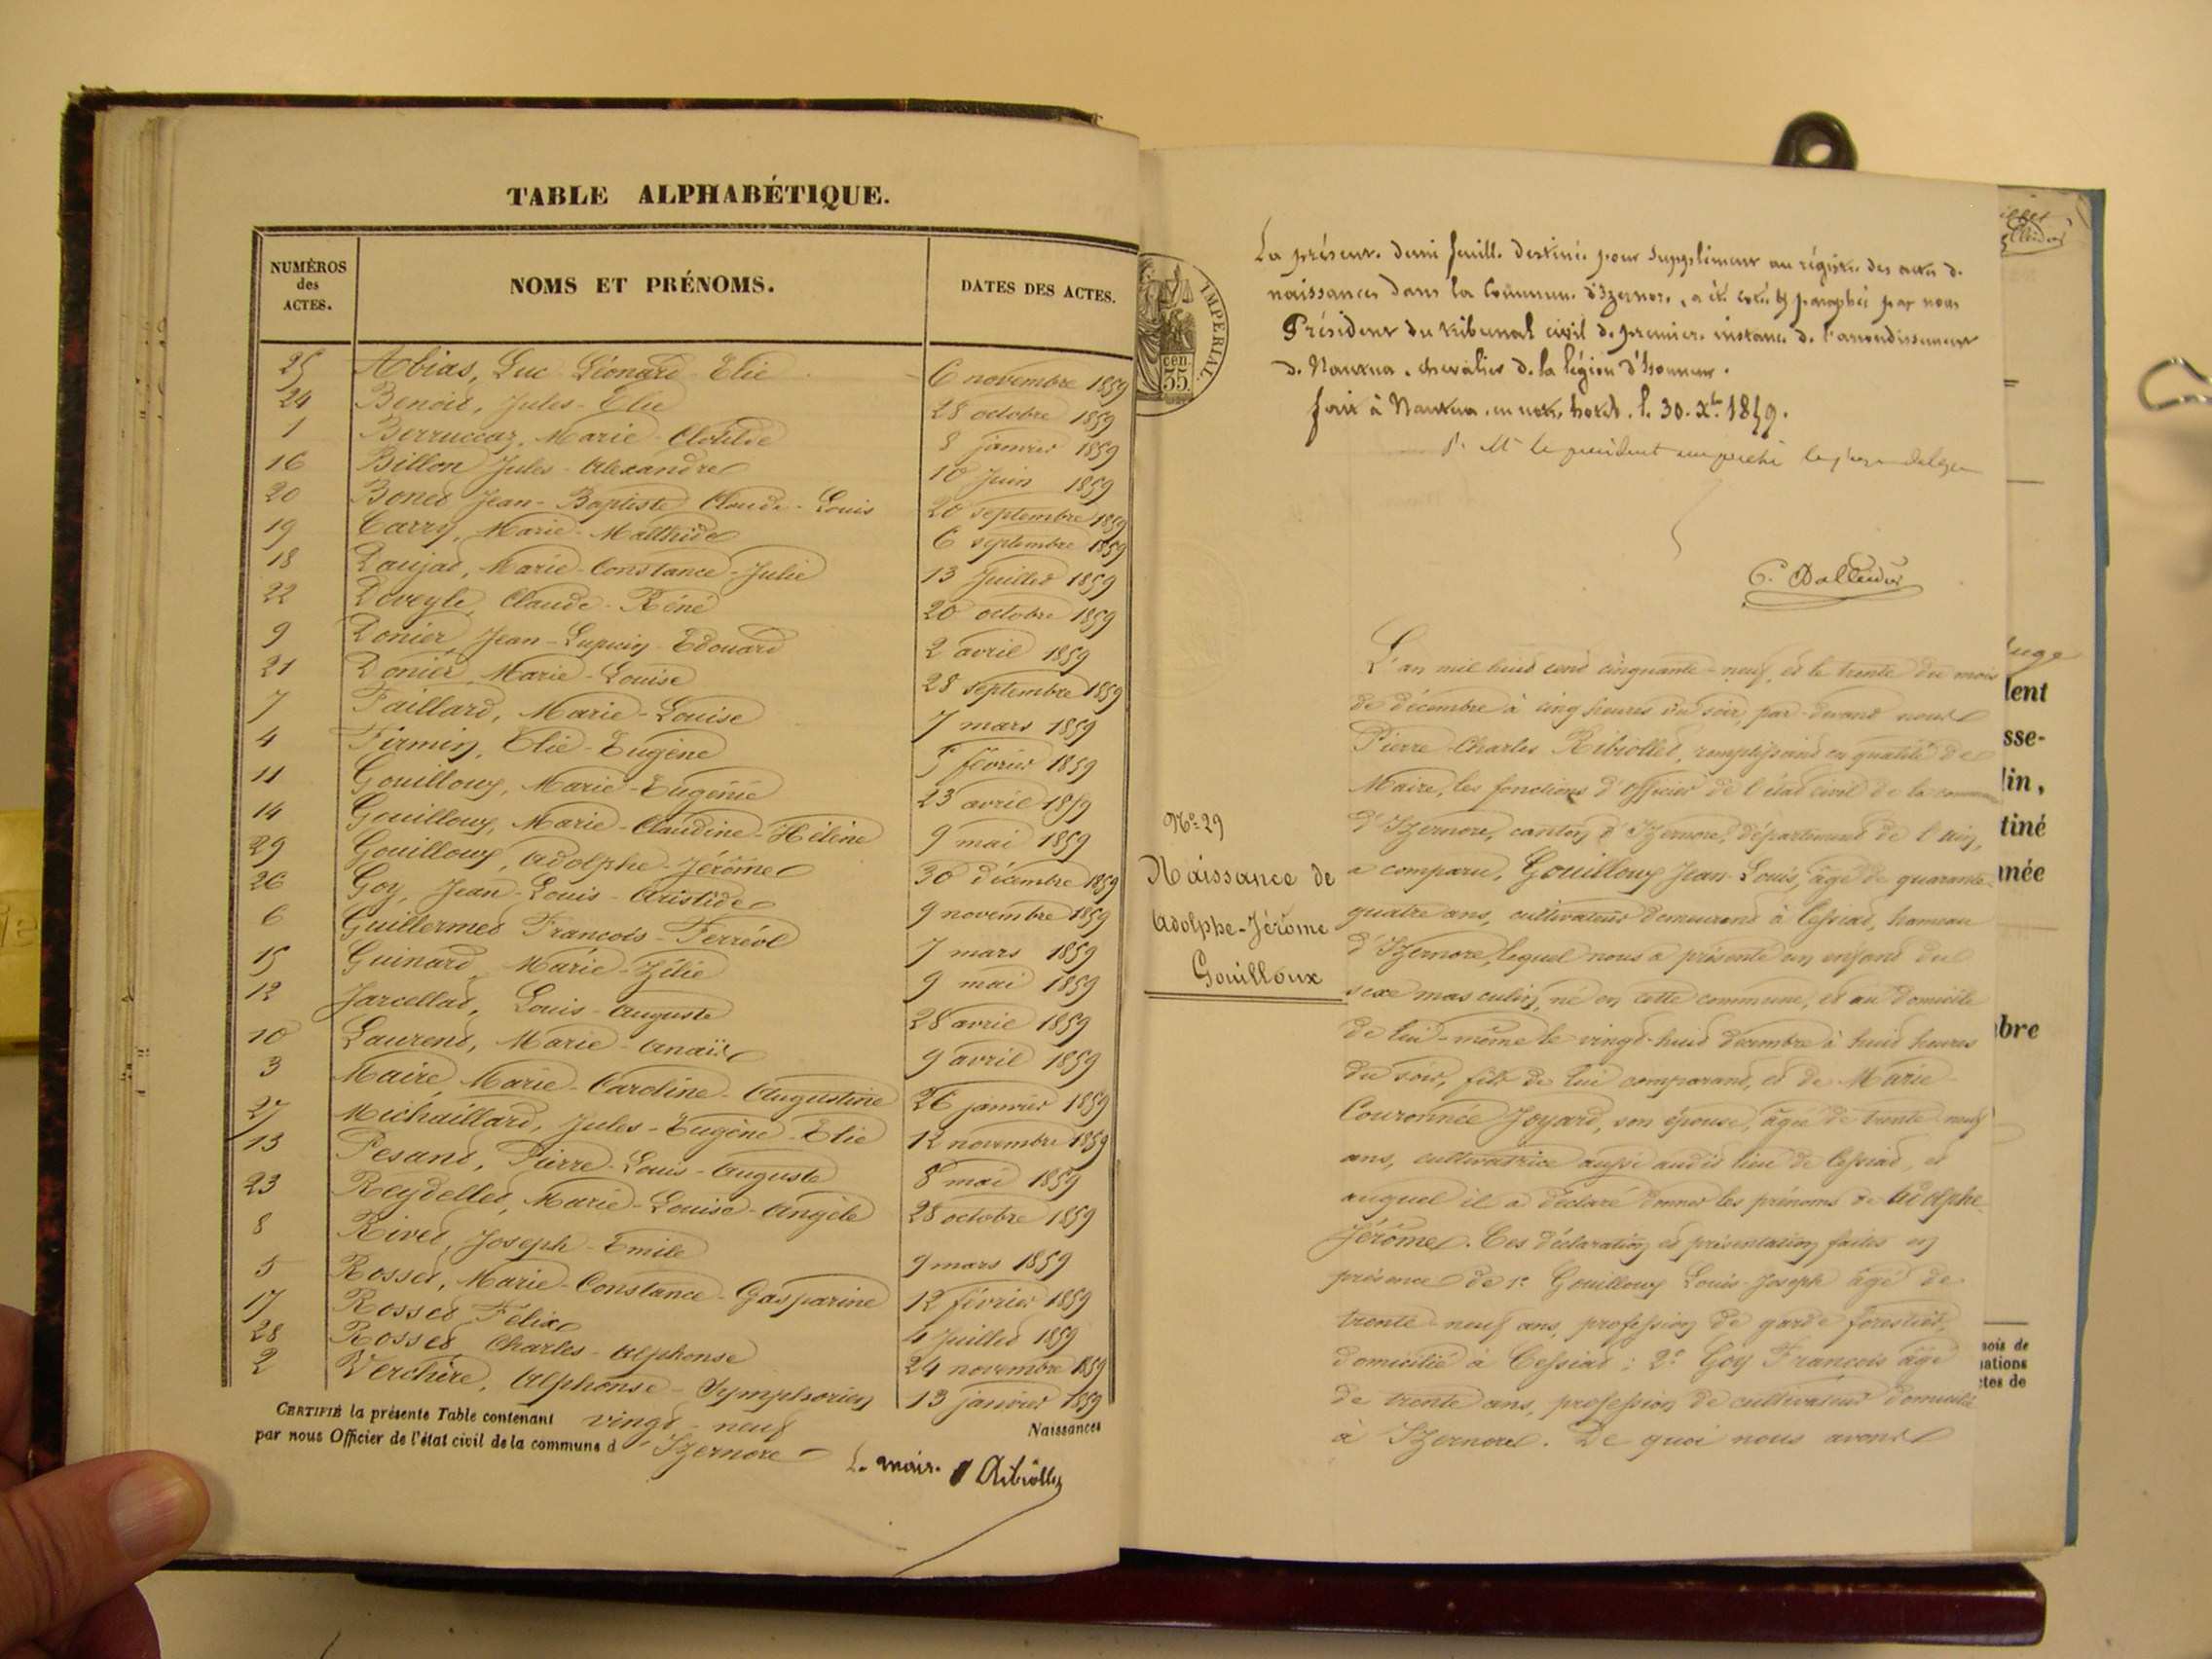 TABLE ALPHABÉTIQUE.
NUMÉROS des ACTES. NOMS ET PRÉNOMS. DATES DES ACTES.
25 Abias, Luc Léonard Elie 6 novembre 1859
24 Benoit, Jules-Elie 28 octobre 1859
1 Berruccaz, Marie Clotilde 8 janvier 1859
16 Billon Jules-Alexandre 10 Juin 1859
20 Bonet Jean-Baptiste Claude-Louis 20 septembre 1859
19 Carry, Marie-Matthide 6 septembre 1859
18 Daujat, Marie-Constance-Julie 13 Juillet 1859
22 Deveyle Claude-Réné 20 octobre 1859
9 Donier Jean-Lupicin Edouard 2 avril 1859
21 Donier Marie-Louise 28 septembre 1859
7 Faillard, Marie-Louise 7 mars 1859
4 Firmin, Elie-Eugène 5 février 1859
11 Gouilloux, Marie-Eugénie 23 avril 1859
14 Gouilloux, Marie-Claudine-Hélène 9 mai 1859
29 Gouilloux, Adolphe-Jérôme 30 décembre 1859
26 Goy, Jean-Louis-Aristide 9 novembre 1859
6 Guillermet François-Ferréol 7 mars 1859
15 Guinard, Marie-Zélie 9 mai 1859
12 Jarcellat, Louis-Auguste 28 avril 1859
10 Laurent, Marie-Anaïs 9 avril 1859
3 Maire, Marie-Caroline-Augustine 26 janvier 1859
27 Michaillard, Jules-Eugène-Elie 12 novembre 1859
13 Pesant, Pierre-Louis-Auguste 8 mai 1859
23 Reydellet, Marie-Louise-Angèle 28 octobre 1859
8 Rivet, Joseph-Emile 9 mars 1859
5 Rosset, Marie-Constance-Gasparine 12 février 1859
17 Rosset Félix 4 Juillet 1859
28 Rosset Charles-Alphonse 24 novembre 1859
2 Verchère, Alphonse-Symphorien 13 janvier 1859
CERTIFIÉ la présente Table contenant vingt-neuf Naissances
par nous Officier de l'état civil de la commune d'Izernore
Le maire
Ribiollet
IMPERIAL.
35 cen
La présente demi feuille destinée pour supplément au régistre des actes de
naissances dans la Commune d'Izernore, a été cotée et paraphée par nous
Président du tribunal civil de première instance de l'arrondissement
de Nantua, chevalier de la légion d'honneur.
fait à Nantua, en notre hotel, le 30 Xbre 1859.
Pr Mr le président empêché le juge délégué
L'an mil huit cent cinquante-neuf, et le trente du mois
de décembre à cinq heures du soir, par-devant nous
Pierre-Charles Ribiollet, remplissant en qualité de
Maire, les fonctions d'officier de l'état civil de la commune
d'Izernore, canton d'Izernore, département de l'Ain,
a comparu, Gouilloux Jean-Louis, âgé de quarante-
quatre ans, cultivateur demeurant à Cessiat, hameau
d'Izernore, lequel nous a présenté un enfant du
sexe masculin, né en cette commune, et au domicile
de lui-même le vingt-huit décembre à huit heures
du soir, fils de lui comparant, et de Marie
Couronnée Joyard, son épouse, âgée de trente-neuf
ans, cultivatrice aussi audit lieu de Cessiat, et
auquel il a déclaré donner les prénoms de Adolphe
Jérôme. Ces déclaration et présentation faites en
présence de 1° Gouilloux Louis-Joseph âgé de
trente-neuf ans, profession de garde forestier,
domicilié à Cessiat; 2° Goy François âgé
de trente ans, profession de cultivateur domicilié
à Izernore. De quoi nous avons
N° 29
Naissance de
Adolphe-Jérôme
Gouilloux
juge
lent
sse-
lin,
tiné
nnée
bre
mois de
ations
ctes de